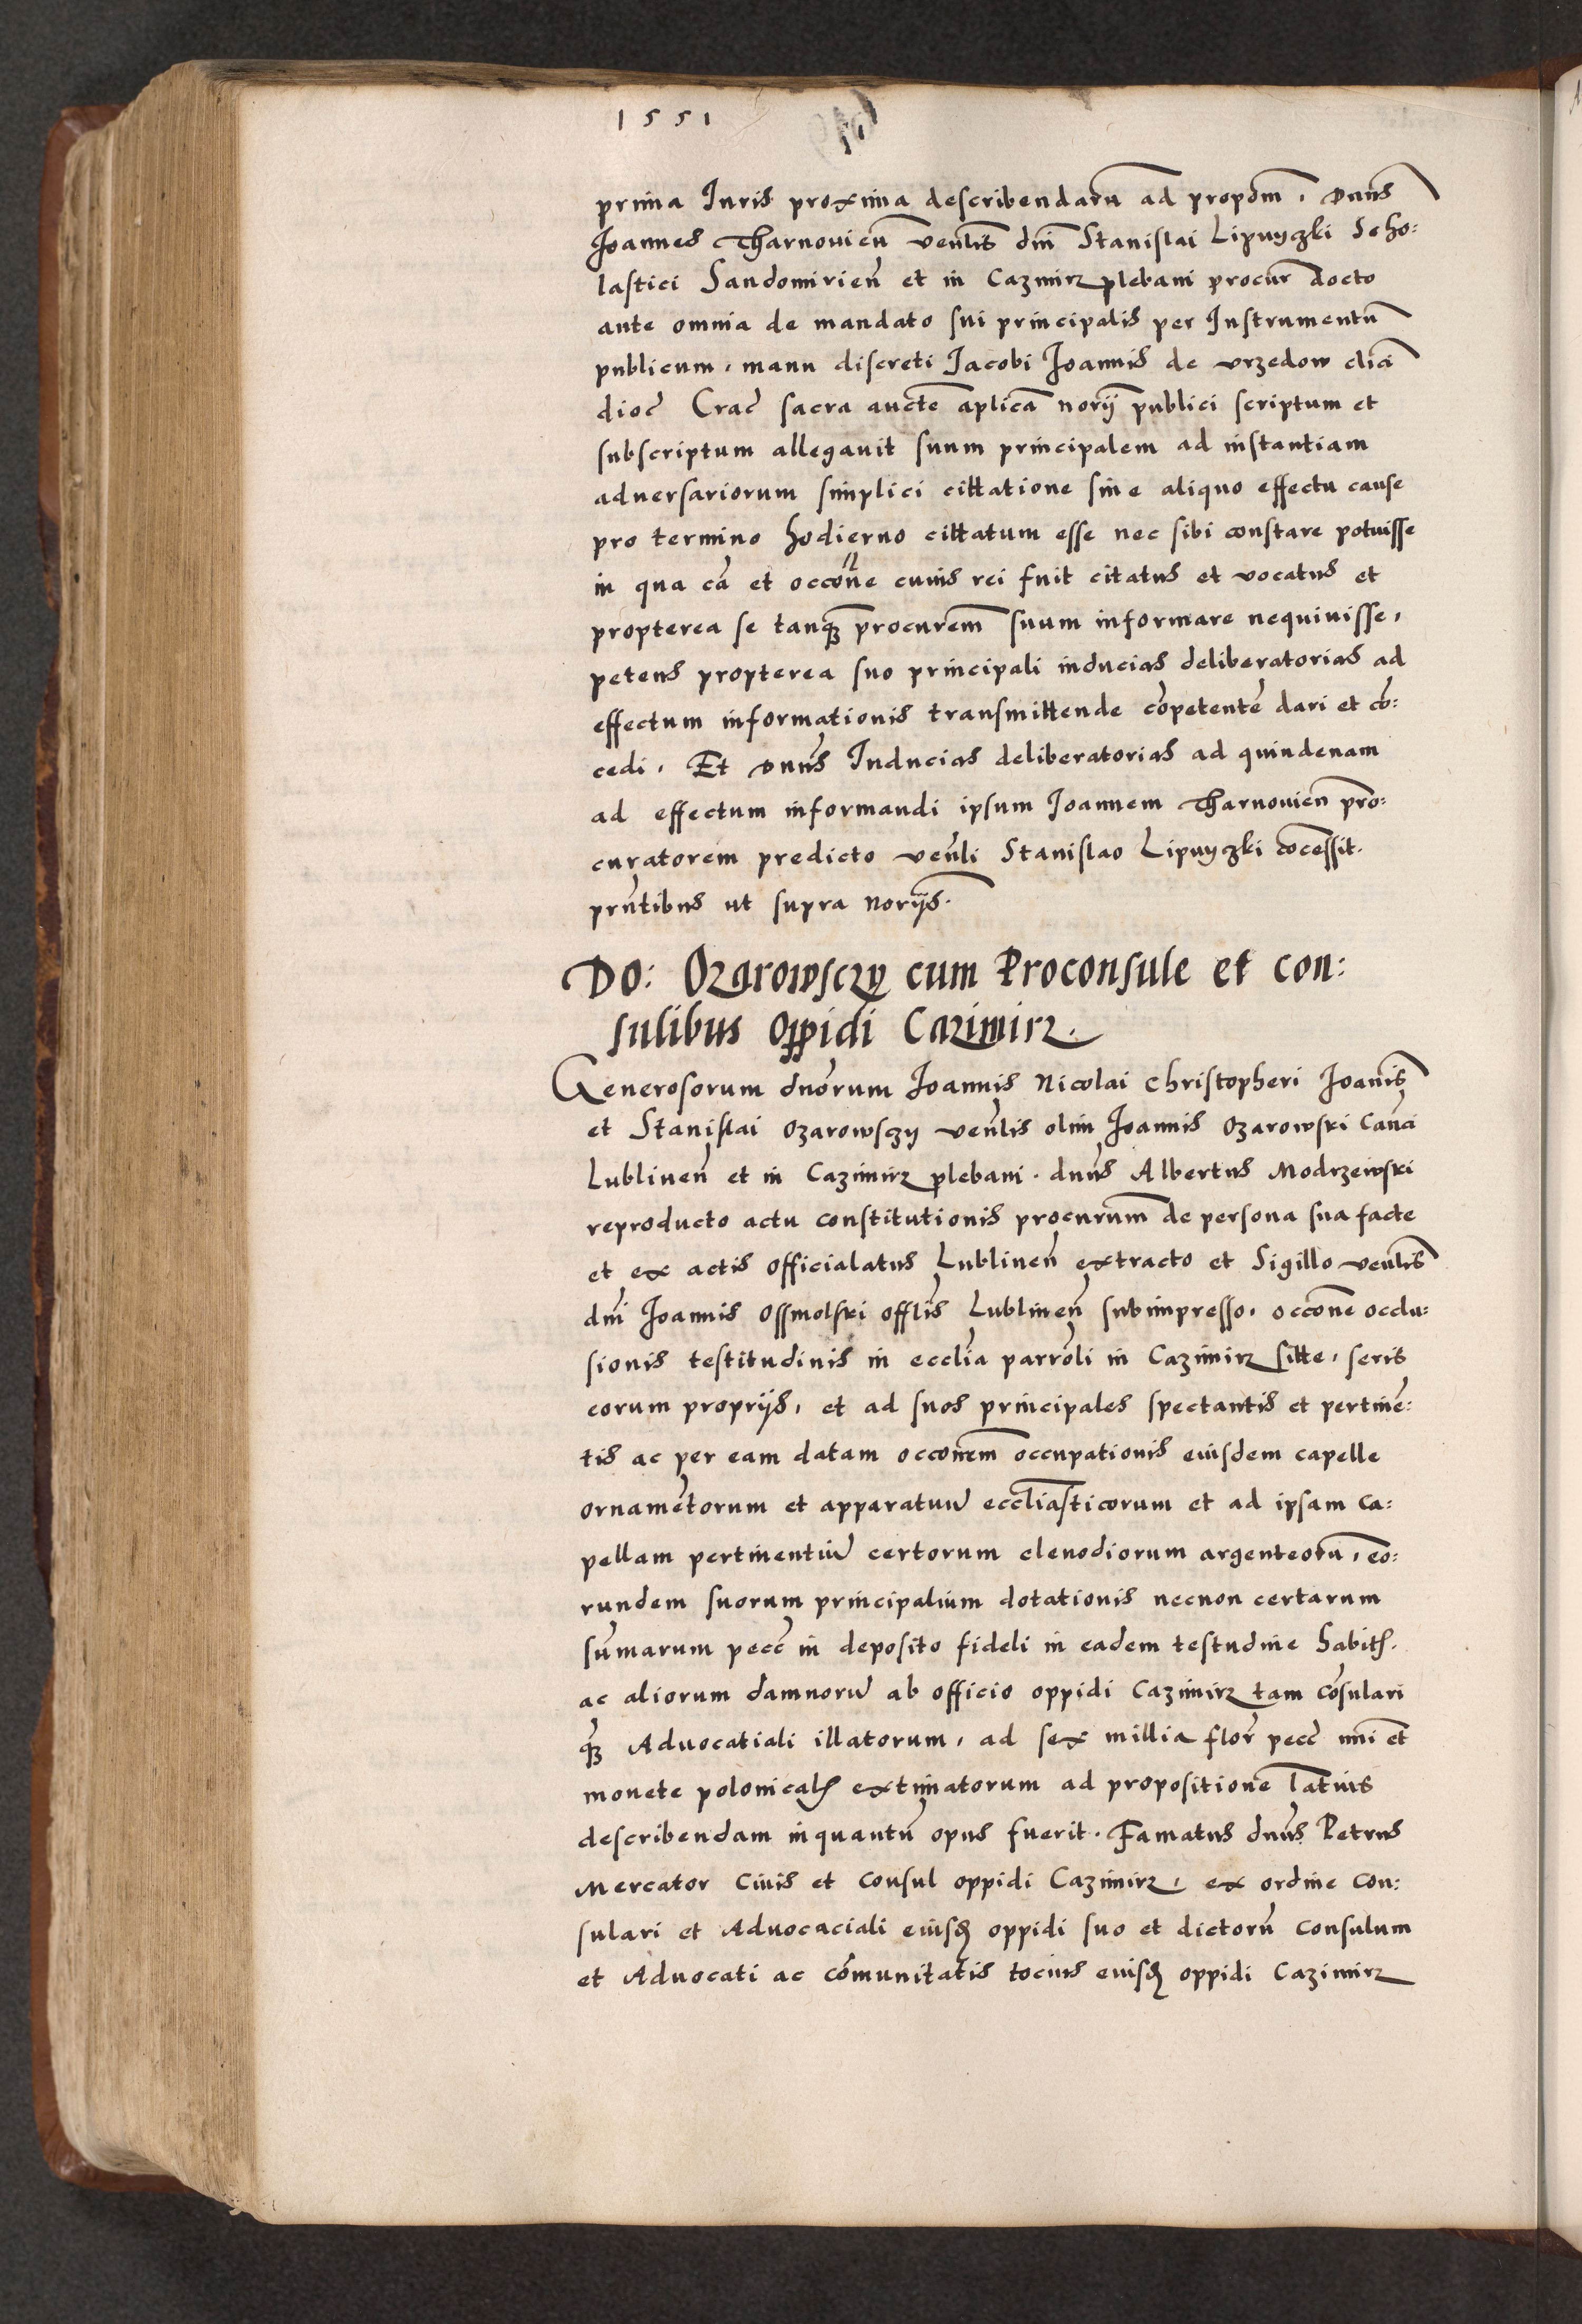 1551
prima Iuris proxima describendarū ad propoñm, Dnūs
Ioannes Tharnovien̄ venlis dnī Stanislai Lipnyczki Scho:
lastici Sandomirien̄ et in Cazmirz plebani procūr docto
ante omnia de mandato sui principalis per Instrumentū
publicum, manu discreti Iacobi Ioannis de Vrzedow clīci
dioc̄ Crac̄ sacra aucte aplica norij publici scriptum et
subscriptum allegavit suum principalem ad instantiam
adversariorum simplici cittatione sine aliquo effectu cause
pro termino hodierno cittatum esse nec sibi constare potuisse
in qua cā et occōne cuius rei fuit citatus et vocatus et
propterea se tanq̄ procurem̄ suum informare nequivisse,
petens propterea suo principali inducias deliberatorias ad
effectum informationis transmittende cōpetentē dari et cō:
cedi, Et Dnūs Inducias deliberatorias ad quindenam
ad effectum informandi ipsum Ioannem Tharnovien̄ pro:
curatorem predicto venli Stanislao Lipnyczki cōcessit.
pn̄tibus ut supra norijs.
Do: Ozarowsczy cum Proconsule et con:
sulibus oppidi Cazimirz.
Generosorum dnorum Ioannis Nicolai Christopheri Ioanis
et Stanislai Ozarowsczy venlis olim Ioannis Ozarowski Canci
Lublinen̄ et in Cazimirz plebani. dnūs Albertus Modrzewski
reproducto actu constitutionis procurum̄ de persona sua facte
et ex actis officialatus Lublinen̄ extracto et Sigillo venlis
dnī Ioannis Ossmolski offlis Lublinen̄ subimpresso. occōne occlu:
sionis testitudinis in ecclīa parroli in Cazimirz sitte, seris
eorum proprijs, et ad suos principales spectantis et pertinē:
tis ac per eam datam occonem̄ occupationis eiusdem capelle
ornamētorum et apparatuū eccliasticorum et ad ipsam ca:
pellam pertinentiū certorum clenodiorum argenteorū, eo:
rundem suorum principalium dotationis necnon certarum
sūmarum pecc̄ in deposito fideli in eadem testudine habitꝭ.
ac aliorum damnorū ab officio oppidi Cazimirz tam cōsulari
q̄ Advocatiali illatorum, ad sex millia flor̄ pecc̄ nnī et
monete polonicalꝭ extimatorum ad propositionē latius
describendam inquantū opus fuerit. Famatus dnūs Petrus
Mercator Civis et Consul oppidi Cazimirz, ex ordine Con:
sulari et Advocaciali eiusd̄ oppidi suo et dictorū Consulum
et Advocati ac cōmunitatis tocius eiusd̄ oppidi Cazimirz